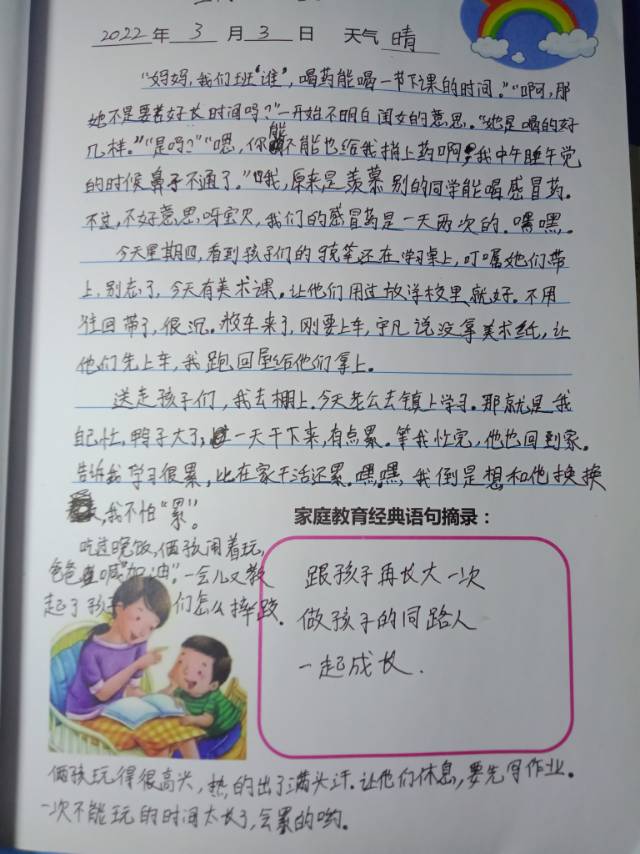 2022年 3 月 3 日 天气 晴
“妈妈,我们班“谁”,喝药能喝一节下课的时间。”“啊,那
她不是要苦好长时间吗?”一开始不明白闺女的意思。“她是喝的好
几样。”“是吗?”“嗯,你能不能也给我捎上药啊,我中午睡午觉
的时候鼻子不通了。”哦,原来是羡慕别的同学能喝感冒药。
不过,不好意思呀宝贝,我们的感冒药是一天两次的。嘿嘿。
今天星期四,看到孩子们的马克笔还在学习桌上,叮嘱她们带
上,别忘了,今天有美术课。让他们用过放学校里就好。不用
往回带了,很沉。校车来了,刚要上车,宁凡说没拿美术纸,让
他们先上车,我跑回屋给他们拿上。
送走孩子们,我去棚上。今天老公去镇上学习。那就是我
自己忙,鸭子大了,一天干下来,有点累。等我忙完,他也回到家。
告诉我学习很累,比在家干活还累。嘿嘿,我倒是想和他换换
,我不怕“累”。
家庭教育经典语句摘录:
吃过晚饭,俩孩闹着玩,
爸爸喊“加油”。一会儿又教
起了孩子们怎么摔跤.
跟孩子再长大一次
做孩子的同路人
一起成长.
俩孩玩得很高兴,热的出了满头汗.让他们休息,要先写作业。
一次不能玩的时间太长了,会累的哟。